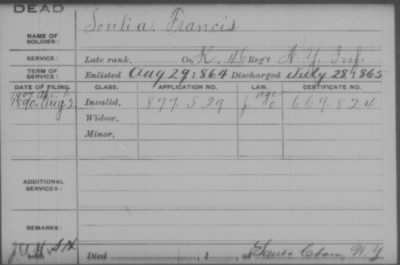 DEAD
NAME OF SOLDIER: Soulia, Francis
SERVICE: Late rank, Co. K, 46 Reg't N.Y. Inf.
TERM OF SERVICE: Enlisted Aug 29 1864 Discharged July 28 1865
DATE OF FILING. CLASS. APPLICATION NO. LAW. CERTIFICATE NO.
1890. Aug 2 Invalid, 877529 669824
Widow,
Minor,
ADDITIONAL SERVICES:
REMARKS:
Died , 1 , at N.Y.